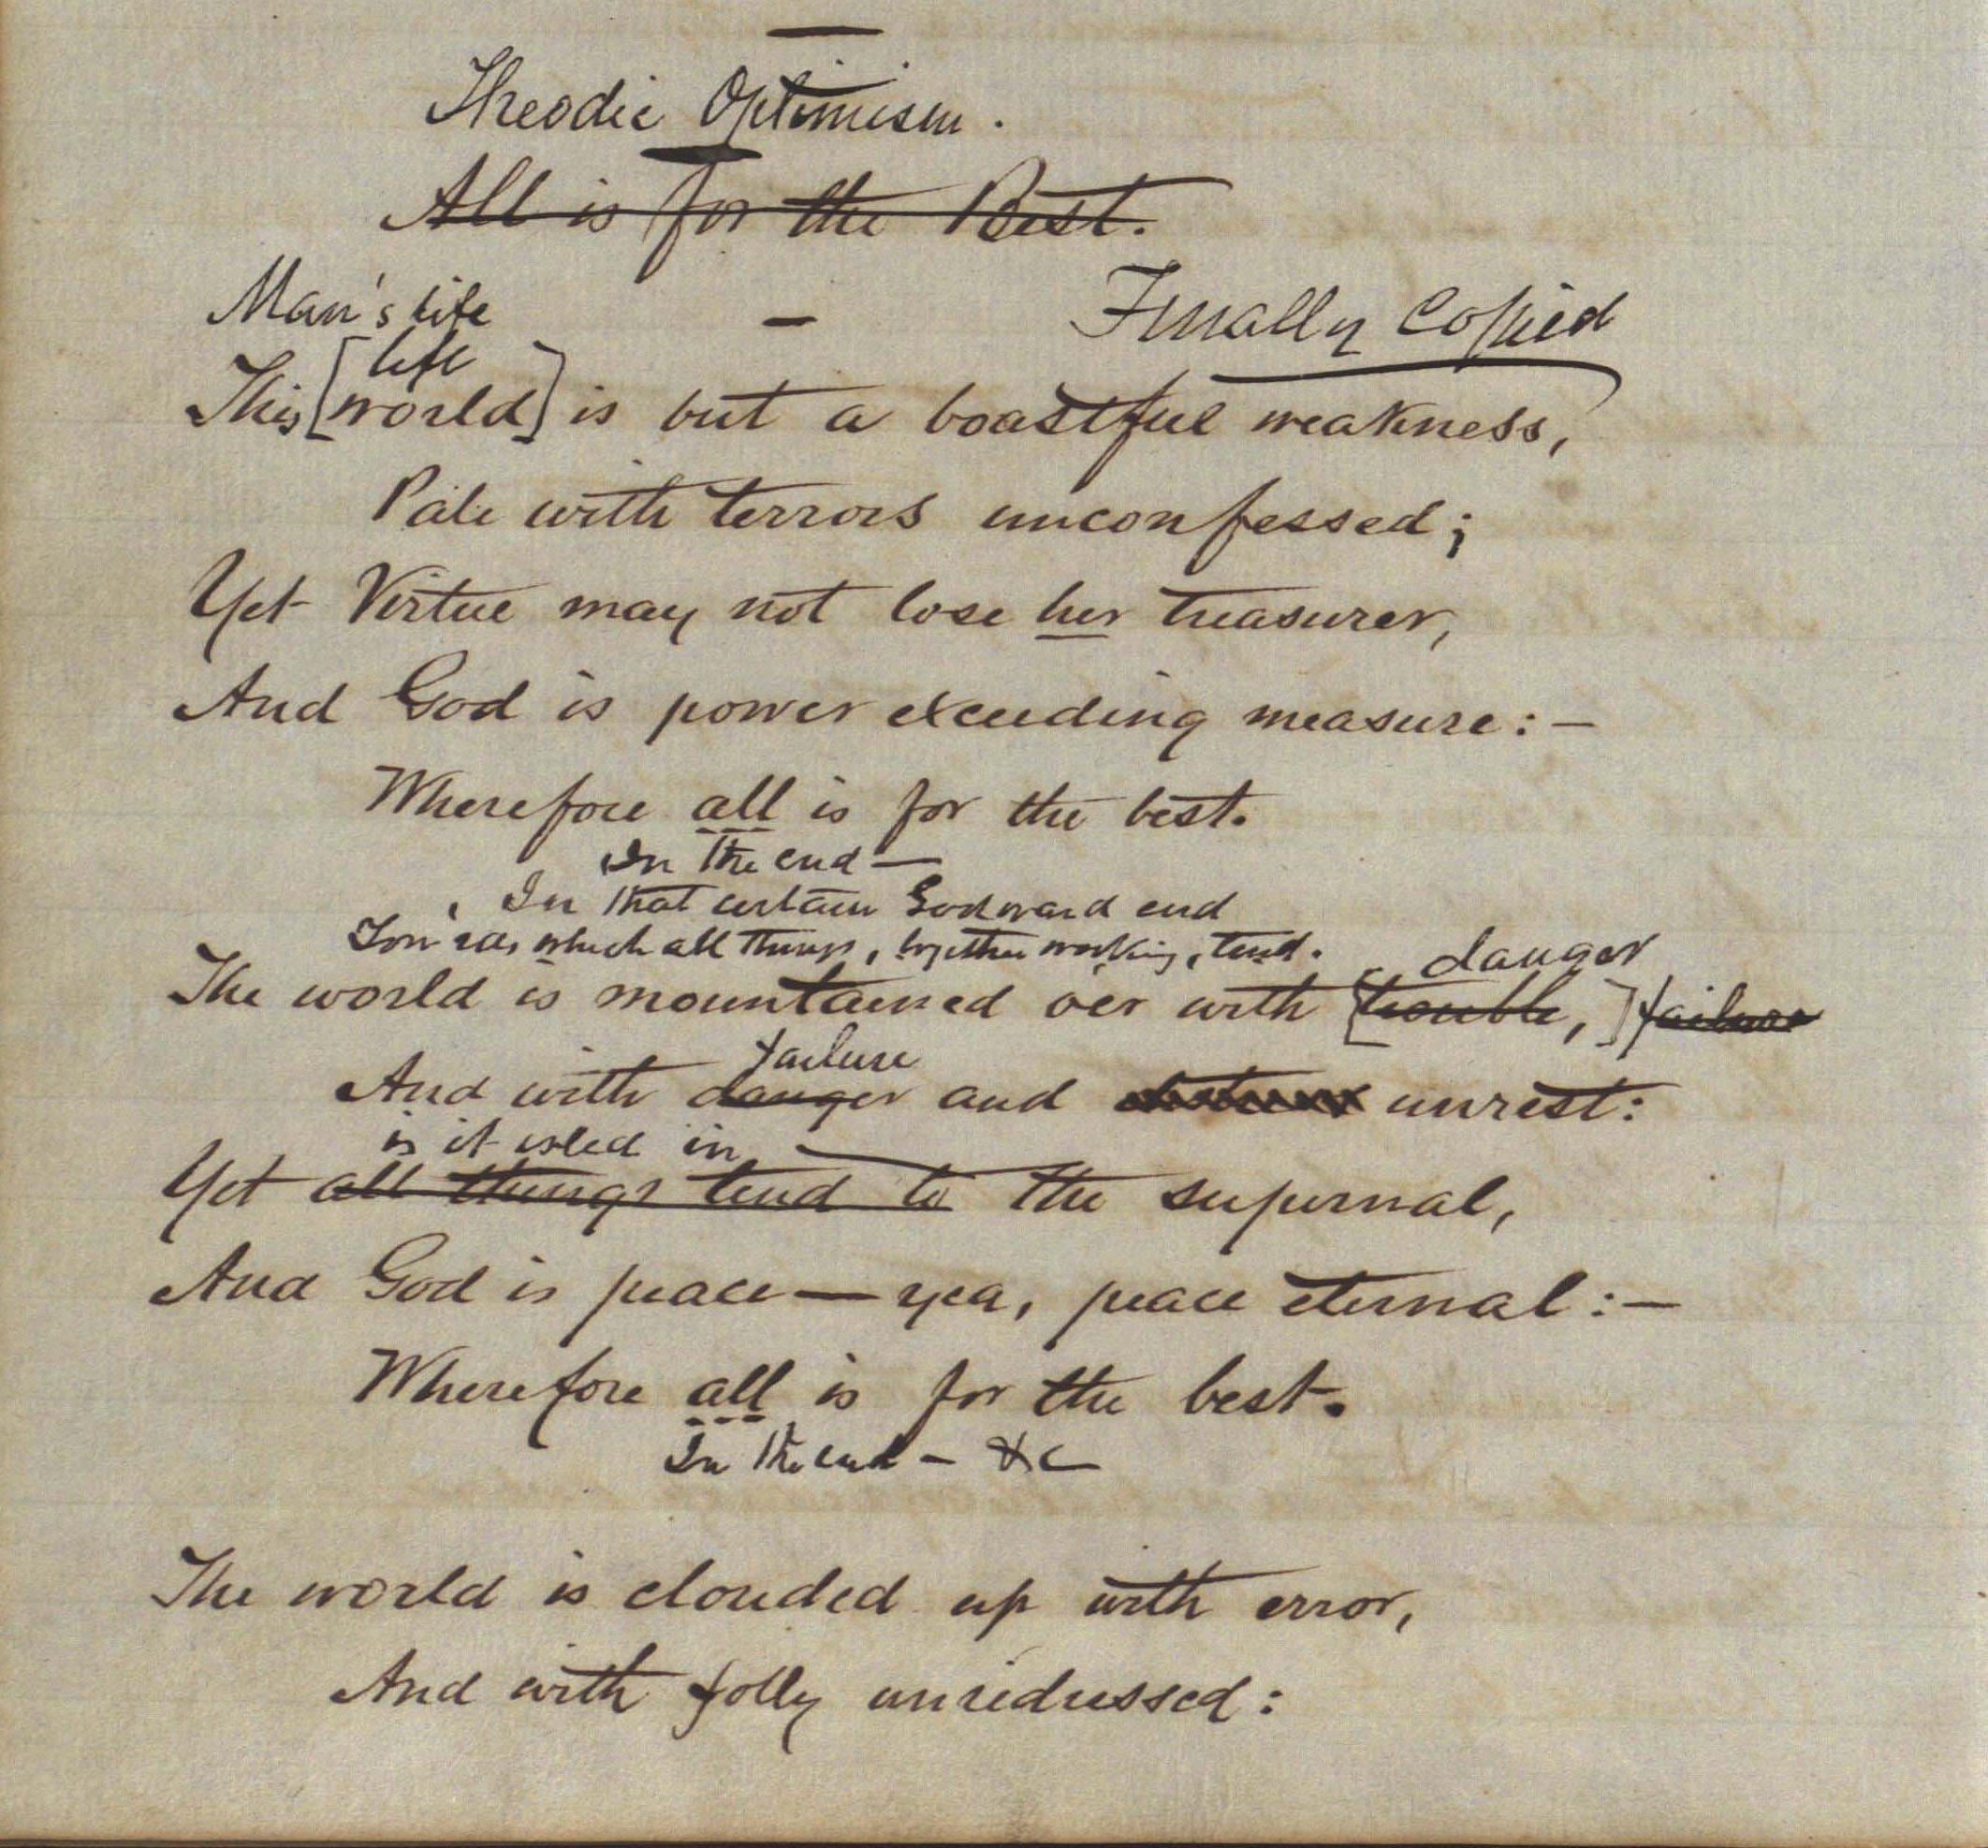 Theodic Optimism.
All is for the Best.
Man's life - Finally Copied
life
This [world] is but a boastful weakness,
Pale with terrors unconfessed;
Yet Virtue may not lose her treasurer,
And God is power exceeding measure:—
Wherefore all is for the best.
In the end—
In that certain Godward end
which all things, together working, tend.
danger
The world is mountained o'er with [trouble,] failure
failure
And with danger and unrest:
is it isled in
Yet all things tend to the supernal,
And God is peace—yea, peace eternal:—
Wherefore all is for the best.
In the end - &c
The world is clouded up with error,
And with folly unredressed: